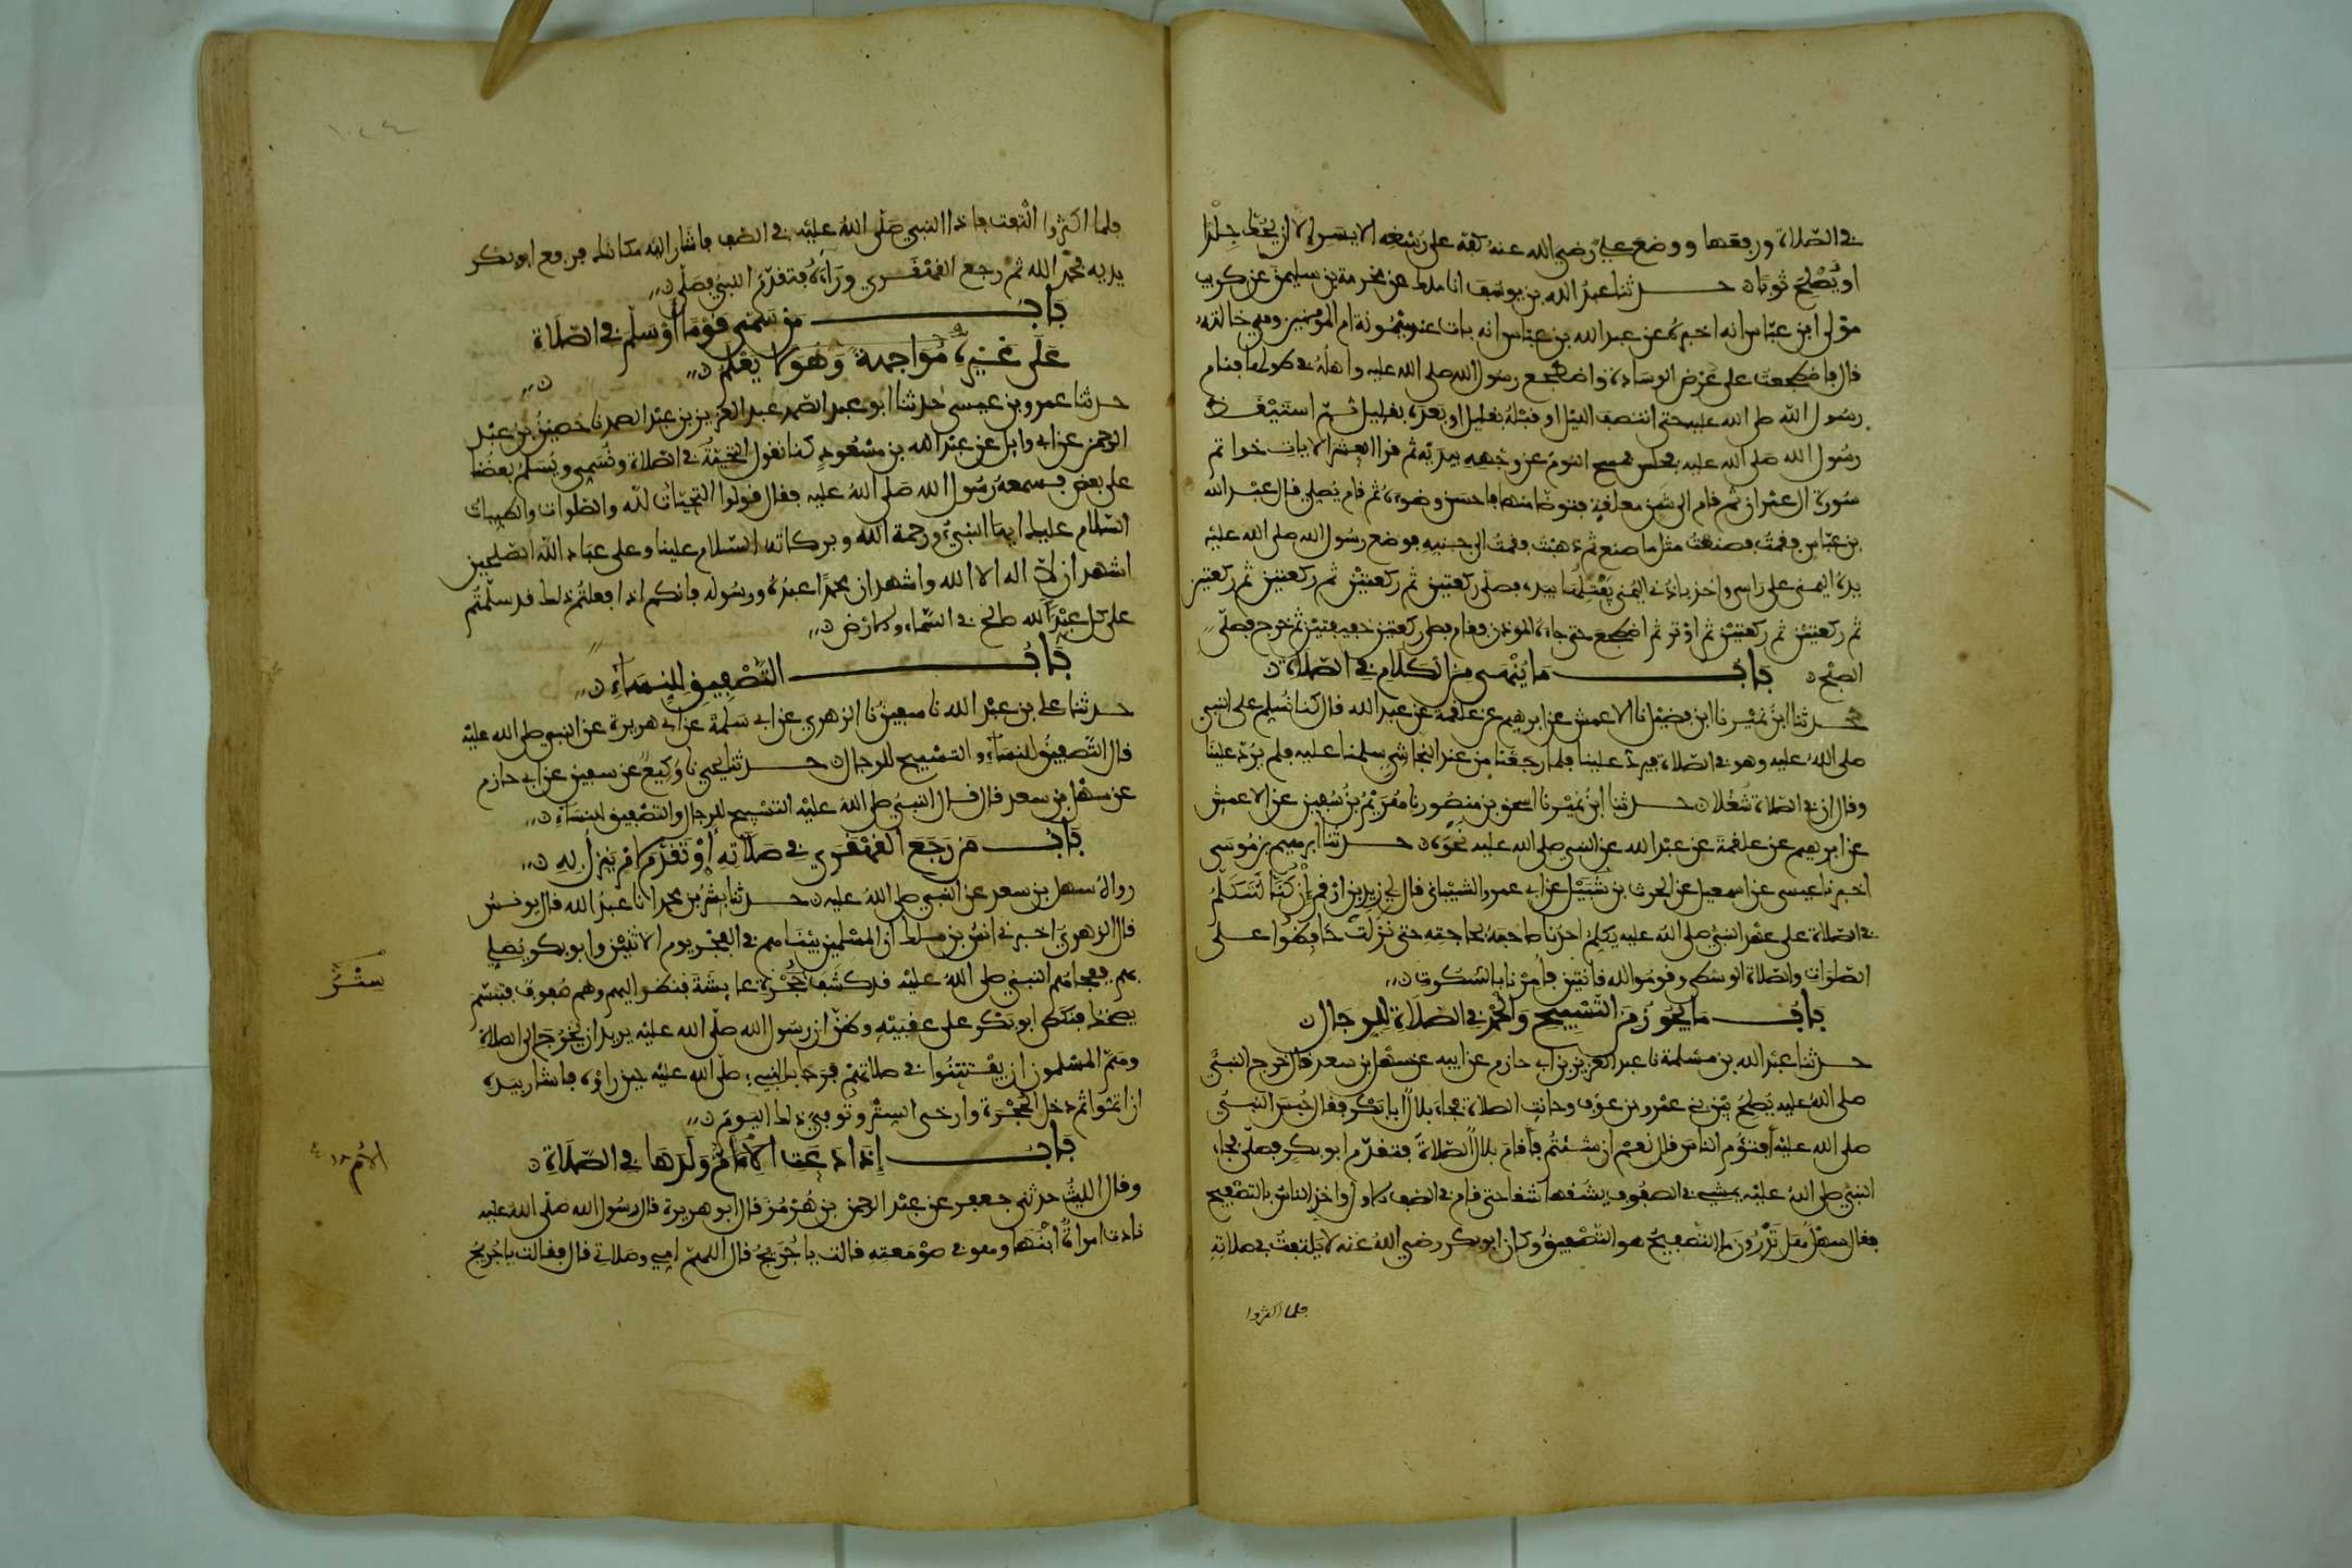 في الصلاة ورفعها ووضع علي رضي الله عنه كفه على رسغه الايسر الا ان يحك جلدا
او يصلح ثوبا حدثنا عبد الله بن يوسف انا ملك عن مخرمة بن سليمن عن كريب
مولى ابن عباس انه اخبره عن عبد الله بن عباس انه بات عند ميمونة ام المومنين وهي خالته
قال فاضطجعت على عرض الوسادة واضطجع رسول الله صلى الله عليه واهله في طولها فنام
رسول الله صلى الله عليه حتى انتصف الليل او قبله بقليل او بعده بقليل ثم استيقظ
رسول الله صلى الله عليه فجلس فمسح النوم عن وجهه بيديه ثم قرا العشر الايات خواتم
سورة ال عمران ثم قام الى شن معلقة فتوضا منها فاحسن وضوءه ثم قام يصلي قال عبد الله
بن عباس فقمت فصنعت مثل ما صنع ثم ذهبت فقمت الى جنبه فوضع رسول الله صلى الله عليه
يده اليمنى على راسي واخذ باذني اليمنى يفتلها بيده فصلى ركعتين ثم ركعتين ثم ركعتين ثم ركعتين
ثم ركعتين ثم ركعتين ثم اوتر ثم اضطجع حتى جاءه الموذن فقام فصلى ركعتين خفيفتين ثم خرج فصلى
الصبح باب ما ينهى من الكلام في الصلاة
حدثنا ابن نمير نا ابن فضيل نا الاعمش عن ابرهيم عن علقمة عن عبد الله قال كنا نسلم على النبي
صلى الله عليه وهو في الصلاة فيرد علينا فلما رجعنا من عند النجاشي سلمنا عليه فلم يرد علينا
وقال ان في الصلاة شغلا حدثنا ابن نمير نا اسحق بن منصور نا هريم بن سفين عن الاعمش
عن ابرهيم عن علقمة عن عبد الله عن النبي صلى الله عليه نحوه حدثنا ابرهيم بن موسى
اخبرنا عيسى عن اسمعيل عن الحرث بن شبيل عن ابي عمرو الشيباني قال لي زيد بن ارقم ان كنا لنتكلم
في الصلاة على عهد النبي صلى الله عليه يكلم احدنا صاحبه بحاجته حتى نزلت حافظوا على
الصلوات والصلاة الوسطى وقوموا لله قانتين فامرنا بالسكوت
باب ما يجوز من التسبيح والحمد في الصلاة للرجال
حدثنا عبد الله بن مسلمة نا عبد العزيز بن ابي حازم عن ابيه عن سهل بن سعد قال خرج النبي
صلى الله عليه يصلح بين بني عمرو بن عوف وحانت الصلاة فجاء بلال ابا بكر فقال حبس النبي
صلى الله عليه افتؤم الناس قال نعم ان شئتم فاقام بلال الصلاة فتقدم ابو بكر فصلى فجاء
النبي صلى الله عليه يمشي في الصفوف يشقها شقا حتى قام في الصف الاول واخذ الناس بالتصفيح
فقال سهل هل تدرون ما التصفيح هو التصفيق وكان ابو بكر رضي الله عنه لا يلتفت في صلاته
فلما اكثروا
فلما اكثروا التفت فاذا النبي صلى الله عليه في الصف فاشار اليه مكانك فرفع ابو بكر
يديه فحمد الله ثم رجع القهقرى وراءه فتقدم النبي فصلى
باب من سمى قوما او سلم في الصلاة
على غيره مواجهة وهو لا يعلم
حدثنا عمرو بن عيسى حدثنا ابو عبد الصمد عبد العزيز بن عبد الصمد نا حصين بن عبد
الرحمن عن ابي وايل عن عبد الله بن مسعود كنا نقول التحية في الصلاة ونسمي ويسلم بعضنا
على بعض فسمعه رسول الله صلى الله عليه فقال قولوا التحيات لله والصلوات والطيبات
السلام عليك ايها النبيء ورحمة الله وبركاته السلام علينا وعلى عباد الله الصلحين
اشهد ان لا اله الا الله واشهد ان محمدا عبده ورسوله فانكم اذا فعلتم ذلك فقد سلمتم
على كل عبد لله صالح في السماء والارض
باب التصفيق للنساء
حدثنا علي بن عبد الله نا سفين نا الزهري عن ابي سلمة عن ابي هريرة عن النبي صلى الله عليه
قال التصفيق للنساء والتسبيح للرجال حدثنا يحيى نا وكيع عن سفين عن ابي حازم
عن سهل بن سعد قال قال النبي صلى الله عليه التسبيح للرجال والتصفيق للنساء
باب من رجع القهقرى في صلاته او تقدم لامر ينزل به
رواه سهل بن سعد عن النبي صلى الله عليه حدثنا بشر بن محمد انا عبد الله قال يونس
قال الزهري اخبرني انس بن ملك ان المسلمين بينا هم في الفجر يوم الاثنين وابو بكر يصلي
بهم ففجاهم النبي صلى الله عليه قد كشف حجرة عايشة فنظر اليهم وهم صفوف فتبسم
يضحك فنكص ابو بكر على عقبيه وظن ان رسول الله صلى الله عليه يريد ان يخرج الى الصلاة
وهم المسلمون ان يفتتنوا في صلاتهم فرحا بالنبيء صلى الله عليه حين راوه فاشار بيده
ان اتموا ثم دخل الحجرة وارخى الستر وتوفي ذلك اليوم
باب اذا دعت الام ولدها في الصلاة
وقال الليث حدثني جعفر عن عبد الرحمن بن هرمز قال ابو هريرة قال رسول الله صلى الله عليه
نادت امراة ابنها وهو في صومعته قالت يا جريج قال اللهم امي وصلاتي قال فقالت يا جريج
ستر
الام